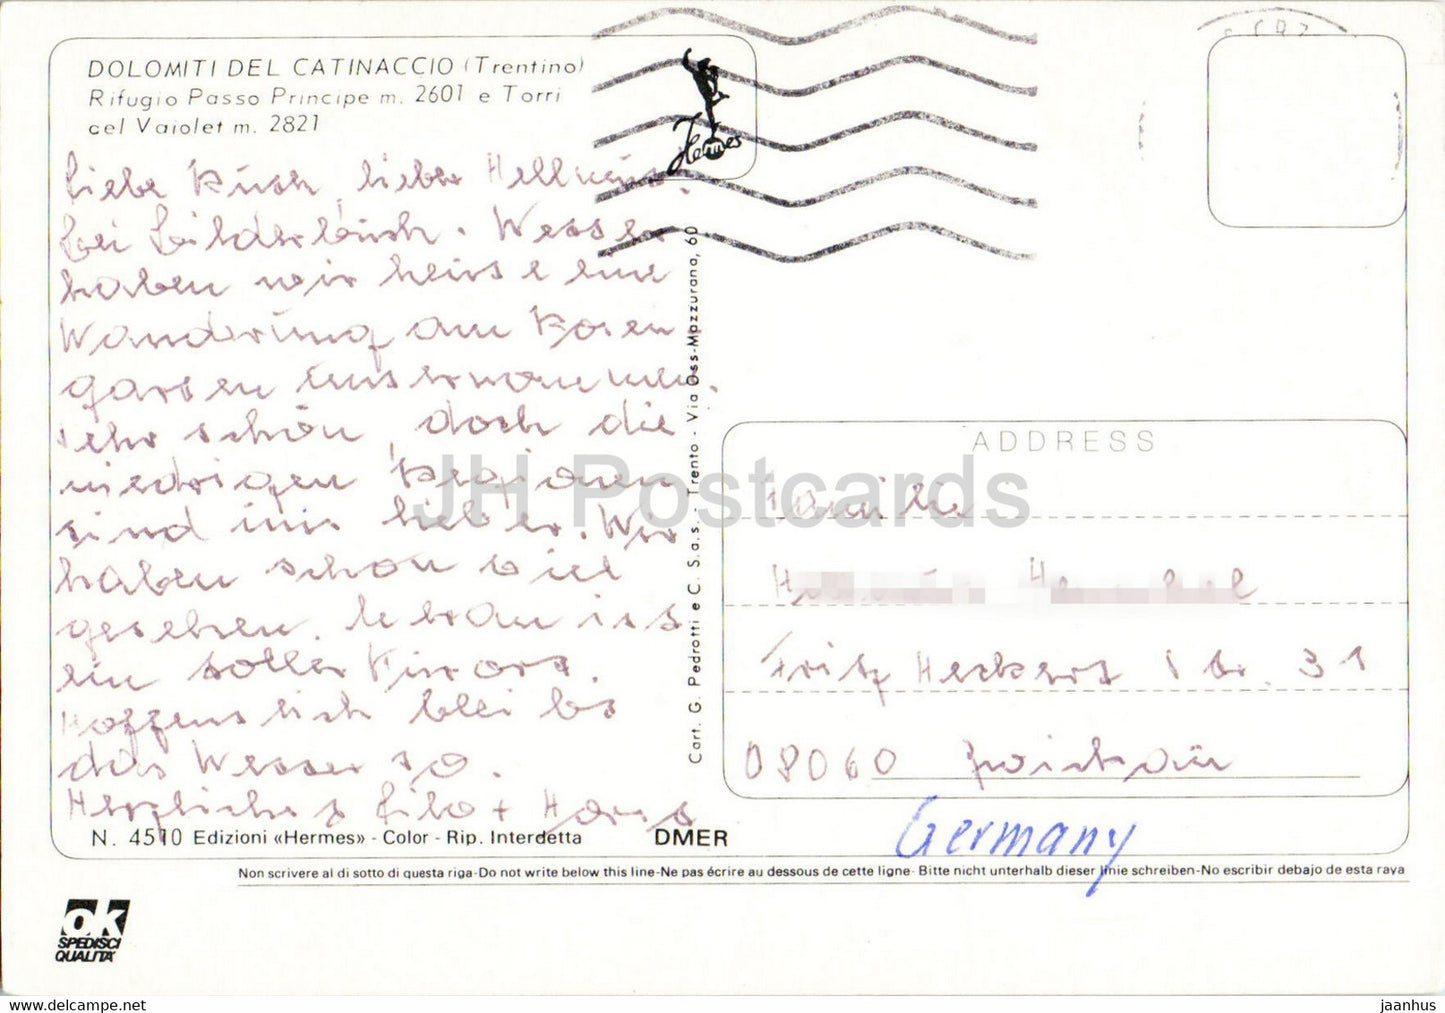 DOLOMITI DEL CATINACCIO (Trentino)
Rifugio Passo Principe m. 2601 e Torri
cel Vaiolet m. 2821
Hermes
Liebe Ruth, lieber Hellmut!
bei Bilderbuch. Wetter
haben wir heute eine
Wanderung am Rosen
garten unternommen.
Sehr schön, doch die
niedrigen Regionen
sind uns lieber. Wir
haben schon viel
gesehen. Meran ist
ein toller Kurort.
Hoffentlich bleibt
das Wetter so.
Herzlichst Lilo + Hans
N. 4510 Edizioni «Hermes» - Color - Rip. Interdetta
DMER
Cart. G. Pedrotti e C. S.a.s. - Trento - Via Oss-Mazzurana, 60
ADDRESS
Familie
Fritz Heckert Str. 31
08060 Zwickau
Germany
Non scrivere al di sotto di questa riga-Do not write below this line-Ne pas écrire au dessous de cette ligne-Bitte nicht unterhalb dieser linie schreiben-No escribir debajo de esta raya
ok
SPEDISCI
QUALITA'
JH Postcards
www.delcampe.net
jaanhus